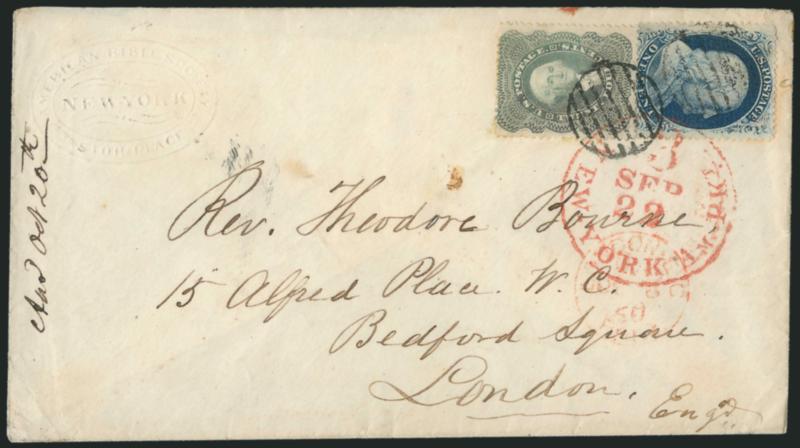 AMERICAN BIBLE SOCIETY
NEW YORK
ASTOR PLACE
Ans Oct 20th
U.S. POSTAGE
U.S. POSTAGE
ONE CENT
3
SEP
22
NEW YORK AM. PKT.
Rev. Theodore Bourne,
15 Alfred Place. W. C.
Bedford Square.
London.
Engd